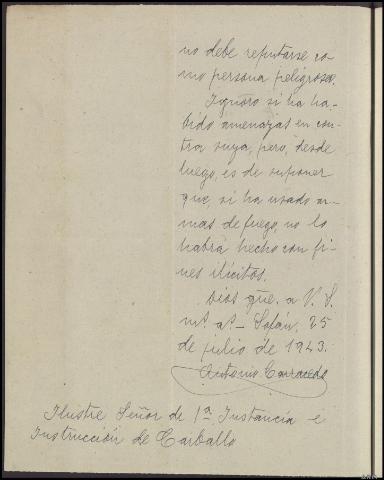 no debe reputarse co-
mo persona peligrosa.
Ignoro si ha ha-
bido amenazas en con-
tra suya, pero, desde
luego, es de suponer
que si ha usado ar-
mas de fuego, no lo
habrá hecho con fi-
nes ilícitos.
Dios gue. a V. S.
ms. as.- Sofán, 25
de julio de 1923.
Antonio Carracedo
Ilustre Señor de 1ª Instancia é
Instrucción de Carballo